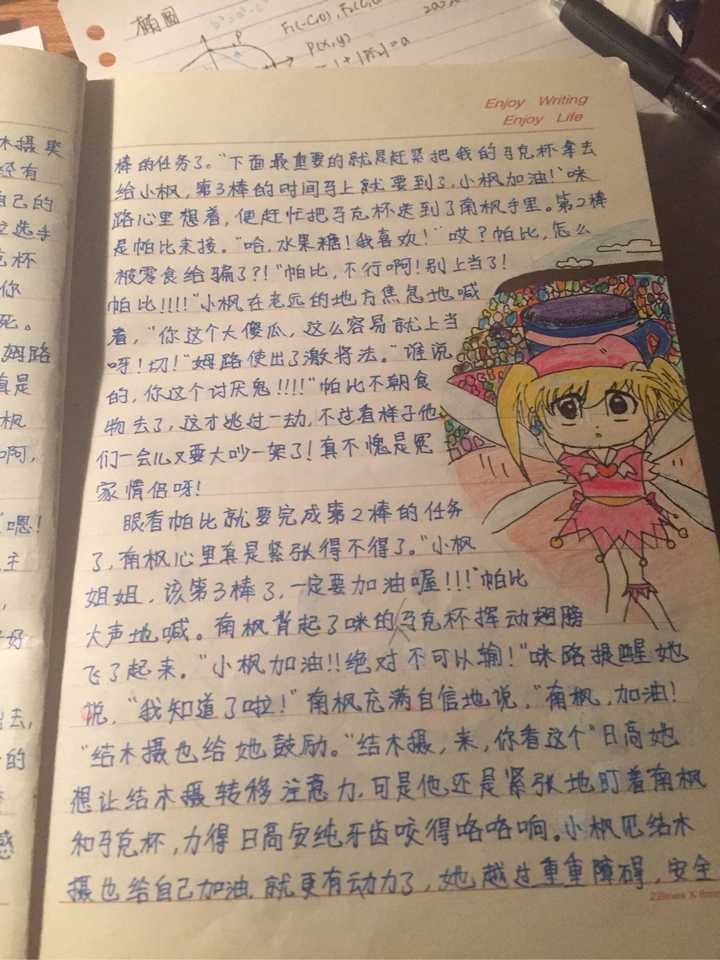 椭圆
F₁(-C,0), F₂(C,0
P
P(x,y)
Enjoy Writing
Enjoy Life
棒的任务了。“下面最重要的就是赶紧把我的马克杯拿去
给小枫,第3棒的时间马上就要到了,小枫加油!”咪
路心里想着,便赶忙把马克杯送到了南枫手里。第2棒
是帕比来接。“哈,水果糖!我喜欢!”哎?帕比,怎么
被零食给骗了?!“帕比,不行啊!别上当了!
帕比!!!!”小枫在老远的地方焦急地喊
着,“你这个大傻瓜,这么容易就上当
呀!切!”姆路使出了激将法。“谁说
的,你这个讨厌鬼!!!!”帕比不朝食
物去了,这才逃过一劫,不过看样子他
们一会儿又要大吵一架了!真不愧是冤
家情侣呀!
眼看帕比就要完成第2棒的任务
了,南枫心里真是紧张得不得了。“小枫
姐姐,该第3棒了,一定要加油喔!!!”帕比
大声地喊。南枫背起了咪的马克杯挥动翅膀
飞了起来。“小枫加油!!绝对不可以输!”咪路提醒她
说,“我知道了啦!”南枫充满自信地说,“南枫,加油!
“结木摄也给她鼓励。“结木摄,来,你看这个”日高她
想让结木摄转移注意力,可是他还是紧张地盯着南枫
和马克杯,力得日高安纯牙齿咬得咯咯响。小枫见结木
摄也给自己加油,就更有动力了,她越过重重障碍,安全
木摄果
经有
自己的
选手
克杯
你
死。
姆路
真是
枫
啊,
嗯!
主
好
去,
的
感